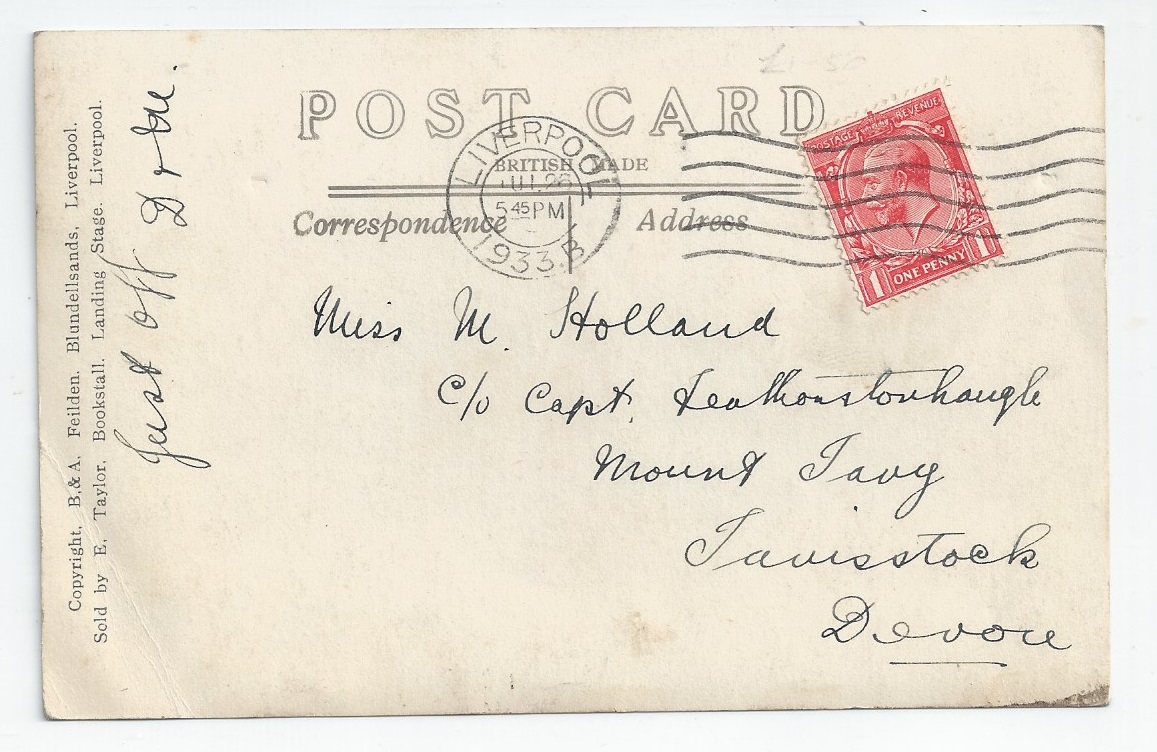 POST CARD
BRITISH MADE
Correspondence Address
LIVERPOOL
5 45 PM
1933. B
POSTAGE REVENUE
1 ONE PENNY 1
Miss M. Holland
C/o Capt. Feathonstonhaugh
Mount Tavy
Tavisstock
Devon
Just off
Copyright, B,& A, Feilden. Blundellsands, Liverpool.
Sold by E, Taylor, Bookstall. Landing Stage. Liverpool.